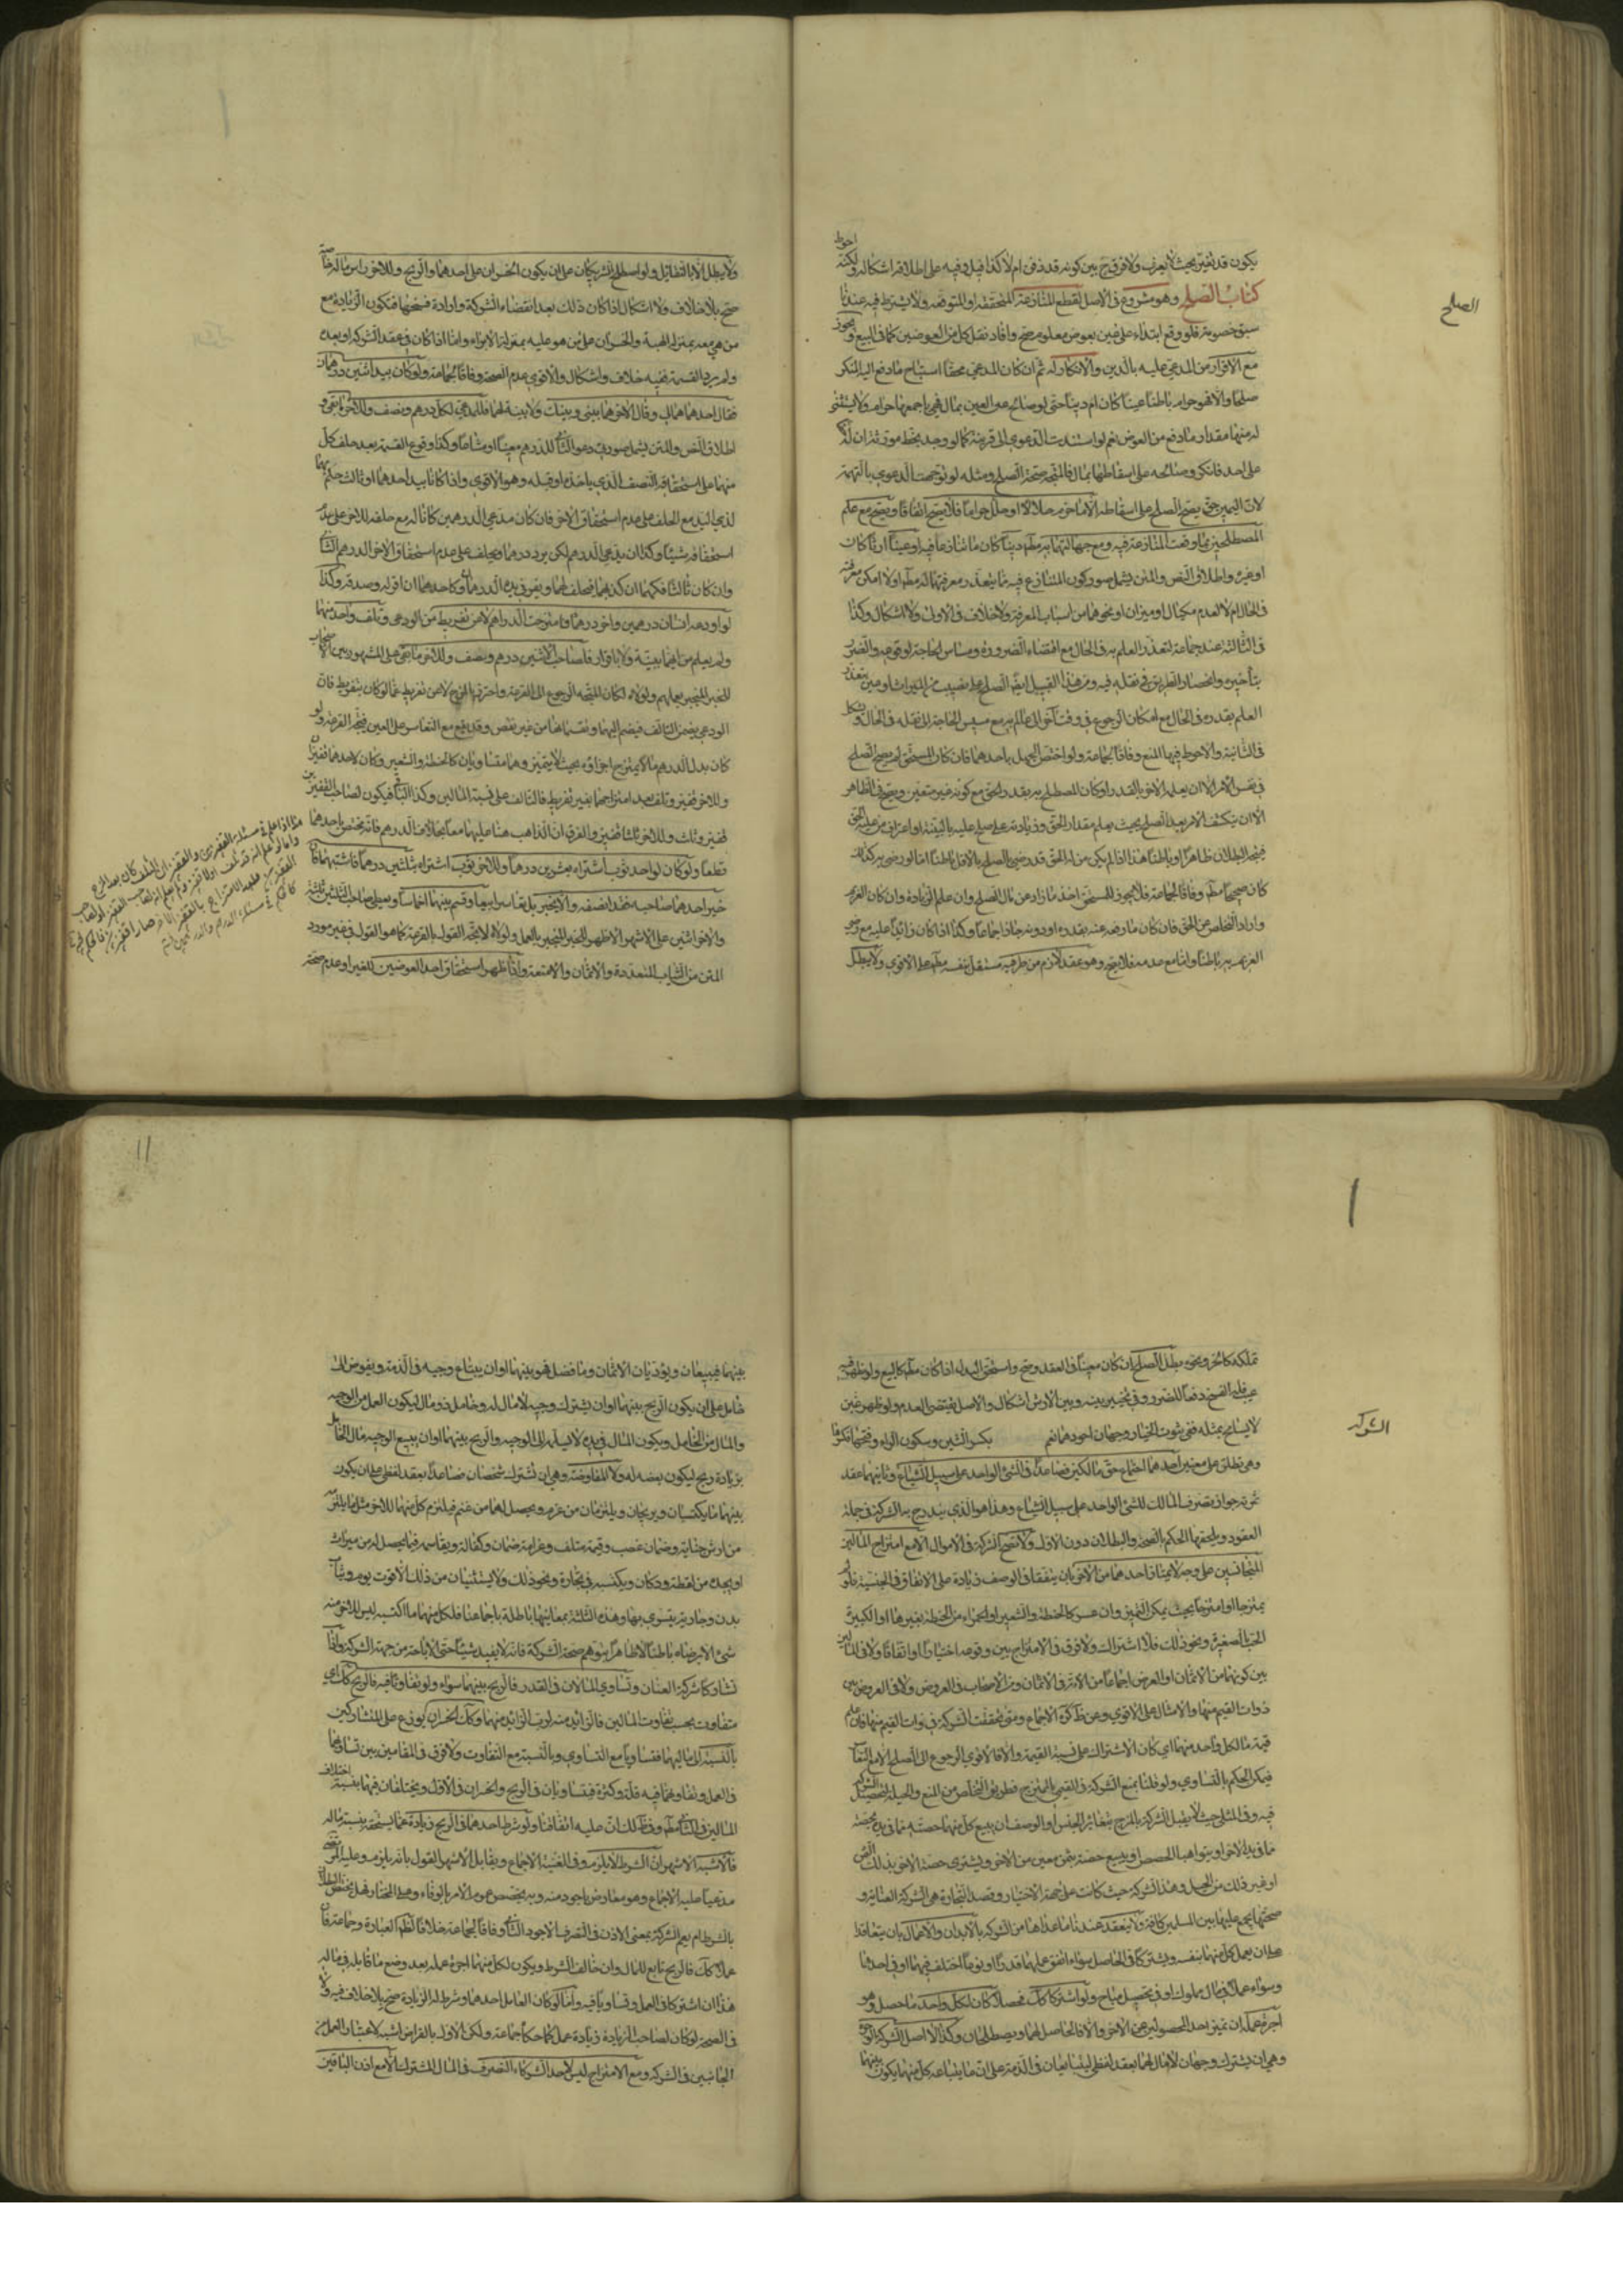 الصلح
يكون قد تغير بحيث لا يعرف ولا فرق بين كونه قد ذهب ام لا كذا قيل وفيه على اطلاقه اشكال ولكنه احوط
كتاب الصلح وهو مشروع في الاصل لقطع المنازعة المتحققه او المتوقعه ولا يشترط فيه عندنا
سبق خصومة فلو وقع ابتداء على عين بعوض معلوم صح وافاد نقل كل من العوضين كما في البيع ويجوز
مع الاقرار من المدعى عليه بالدين والانكار له ثم ان كان المدعي محقا استباح ما دفع اليه المنكر
صلحا والا فهو حرام باطنا عينا كان ام دينا حتى لو صالح عن العين بمال فهي باجمعها حرام ولا يستثنى
له منها مقدار ما دفع من العوض نعم لو استندت الدعوى الى قرينة كما لو وجد بخط مورثه ان له
على احد فانكر وصالحه على اسقاطها بمال فالمتجه صحة الصلح ومثله لو توجهت الدعوى بالتهمة
لان اليمين حق يصح الصلح على اسقاطه الا ما حرم حلالا او حلل حراما فلا يصح اتفاقا ويصح مع علم
المصطلحين بما وقعت المنازعة فيه ومع جهالتهما به مطلقا دينا كان ما تنازعا فيه او عينا ارثا كان
او غيره واطلاق النص والمتن يشمل صور كون المتنازع فيه مما يتعذر معرفتهما له مطلقا او لا امكن معرفته
في الحال ام لا لعدم مكيال او ميزان او نحوهما من اسباب المعرفة ولا خلاف في الاول ولا اشكال وكذا
في الثالثة عند جماعة لتعذر العلم به في الحال مع اقتضاء الضرورة ومساس الحاجة لوقوعه والضرر
بتأخيره وانحصار الطريق في نقله فيه ومن هذا القبيل ايضا الصلح على نصيب من الميراث او عين يتعذر
العلم بقدره في الحال مع امكان الرجوع في وقت آخر الى عالم به مع مسيس الحاجة الى نقله في الحال ويشكل
في الثانية والاحوط فيها المنع وفاقا لجماعة ولو اختص الجهل باحدهما فان كان المستحق لم يصح الصلح
في نفس الامر الا ان يعلمه الاخر بالقدر او كان المصطلح به بقدر الحق مع كونه غير متعين ويصح في الظاهر
الا ان ينكشف الامر بعد الصلح بحيث يعلم مقدار الحق وزيادته على ما صولح عليه بالبينة او اعتراف من عليه الحق
فيتجه البطلان ظاهرا وباطنا هذا اذا لم يكن من له الحق قد رضي الصلح بالاقل باطنا اما لو رضي به كذلك
كان صحيحا مطلقا وفاقا لجماعة فلا يجوز للمستحق اخذ ما زاد عن مال الصلح وان علم الزيادة وان كان الغريم
واراد التخلص من الحق فان كان ما رضه عنه بقدره او دونه جاز اجماعا وكذا اذا كان زائدا عليه مع رضى
الغريم به باطنا واما مع عدمه فلا يصح وهو عقد لازم من طرفيه مستقل بنفسه مطلقا على الاقوى ولا يبطل
ولا يبطل الا بالتقايل ولو اصطلح الشريكان على ان يكون الخسران على احدهما والربح وللاخر راس ماله خاصة
صح بلا خلاف ولا اشكال اذا كان ذلك بعد انقضاء الشركة وارادة فسخها فتكون الزيادة مع
من هي معه بمنزلة الهبة والخسران على من هو عليه بمنزلة الابراء واما اذا كان في عقد الشركة او بعده
ولم يرد القسمة ففيه خلاف واشكال والاقوى عدم الصحة وفاقا لجماعة ولو كان بيد اثنين درهمان
فقال احدهما هما لي وقال الاخر هما بيني وبينك ولا بينة لهما فللمدعي لكل درهم ونصف وللاخر ما بقي و
اطلاق النص والمتن يشمل صورتي دعوى الثاني للدرهم معينا او مشاعا وكذا وقوع القسمة بعد حلف كل
منهما على استحقاقه النصف الذي ياخذه او قبله وهو الاقوى واذا كانا بيد احدهما او ثالث حكم بهما
لذي اليد مع الحلف على عدم استحقاق الاخر فان كان مدعي الدرهمين كانا له مع حلفه للاخر على عدم
استحقاقه شيئا وكذا ان يدعي الدرهم لكن يرد درهما ويحلف على عدم استحقاق الاخر الدرهم الثاني
وان كان ثالثا فكهما ان كذبهما فيحلف لهما ويقر في يده الدرهمان وكاحدهما ان اقر له وصدقه وكذا
لو اودعه انسان درهمين واخر درهما وامتزجت الدراهم لا من تفريط من الودعي وتلف واحد منها
ولم يعلم من ايهما ببينة ولا باقرار فلصاحب الاثنين درهم ونصف وللاخر ما بقي على المشهور بين الاصحاب
للخبر المنجبر بعملهم ولولاه لكان المتجه الرجوع الى القرعة واحترز بالمزج لا من تفريط عما لو كان بتفريط فان
الودعي يضمن التالف فيضم اليهما ويقسمانها من غير نقص وقد يقع مع التعاسر على العين فيتجه القرعة ولو
كان بدل الدرهم مالا يمتزج اجزاؤه بحيث لا يتميز وهما متساويان كالحنطة والشعير وكان لاحدهما قفيزان
وللاخر قفيز وتلف بعد امتزاجهما بغير تفريط فالتالف على نسبة المالين وكذا الباقي فيكون لصاحب القفيزين
قفيز وثلث وللاخر ثلثا قفيز والفرق ان الذاهب هنا عليهما معا بخلاف الدرهم فانه مختص باحدهما
قطعا ولو كان لواحد ثوب اشتراه بعشرين درهما وللاخر ثوب اشتراه بثلثين درهما فاشتبها فان
خير احدهما صاحبه فقد انصفه والا يخير بل تعاسرا بيعا وقسم بينهما اخماسا ويعطى صاحب الثلثين ثلثة
والاخر اثنين على الاشهر الاظهر للخبر المنجبر بالعمل ولولاه لاتجه القول بالقرعة كما هو القول في غير مورد
المتن من الثياب المتعددة والاثمان والامتعة واذا ظهر استحقاق احد العوضين للغير او عدم صحة
الشركه
تملكه كالخمر ونحوه بطل الصلح ان كان معينا في العقد وصح واستحق البدل اذا كان مطلقا كالبيع ولو ظهر فيه
عيب فله الفسخ دفعا للضرر وفي تخييره بينه وبين الارش اشكال والاصل يقتضي العدم ولو ظهر غبن
لا يتسامح بمثله ففي ثبوت الخيار وجهان اجودهما نعم بكسر الشين وسكون الراء وفتحها فكسرها
وهي تطلق على معنيين احدهما اجتماع حق مالكين فصاعدا في الشيء الواحد على سبيل الشياع وثانيهما عقد
ثمرته جواز تصرف المالك للشيء الواحد على سبيل الشياع وهذا هو الذي يندرج به الشركة في جملة
العقود ويلحقها الحكم بالصحة والبطلان دون الاول ولا تصح الشركة في الاموال الا مع امتزاج المالين
المتجانسين على وجه لا يمتاز احدهما من الاخر بان يتفقا في الوصف زيادة على الاتفاق في الجنسية فلو لم
يمتزجا او امتزجا بحيث يمكن التميز وان عسر كالحنطة والشعير او الحمراء من الحنطة بغيرها او الكبيرة
الحب الصغيرة ونحو ذلك فلا اشتراك ولا فرق في الامتزاج بين وقوعه اختيارا او اتفاقا ولا في المالين
بين كونهما من الاثمان او العرض اجماعا من الامة في الاثمان ومن الاصحاب في العروض ولا في العروض بين
ذوات القيم منها والامثال على الاقوى وعن ظاهر كره الاجماع ومتى تحققت الشركة في ذوات القيم منها فان علم
قيمة ما لكل واحد منهما اي كان الاشتراك على نسبة القيمة والا فالاقوى الرجوع الى الصلح الا مع التعاسر
فيمكن الحكم بالتساوي ولو قلنا بمنع الشركة في القيمي بالمزج فطريق التخلص من المنع والحيلة لتحصيل الشركة
فيه وفي المثلي حيث لا يقبل الشركة بالمزج بتغاير الجنس او الوصف ان يبيع كل منهما حصته مما في يده بحصة
مما في يد الاخر او يتواهبا الحصص او يبيع حصته بثمن معين من الاخر ويشتري حصة الاخر بذلك الثمن
او غير ذلك من الحيل وهذه الشركة حيث كانت على جهة الاختيار وقصد التجارة هي الشركة العنانية و
صحتها مجمع عليها بين المسلمين كافة ولا ينعقد عندنا ما عداها من الشركة بالابدان والاعمال بان يتعاقدا
على ان يعمل كل منهما بنفسه ويشتركا في الحاصل سواء اتفق عملهما قدرا او نوعا ام اختلف فيهما او في احدهما
وسواء عملا في مال مملوك او في تحصيل مباح ولو اشتركا كذلك فحصلا كان لكل واحد ما حصل وهو
اجرة عمله ان تميز احد الحصولين عن الاخر والا فالحاصل لهما ويصطلحان وكذا لا اصل لشركة الوجوه
وهي ان يشترك وجيهان لا مال لهما بعقد لفظي ليبتايعان في الذمة على ان ما يبتاعه كل منهما يكون بينهما
بينهما فيبيعان ويؤديان الاثمان وما فضل فهو بينهما او ان يبتاع وجيه في الذمة ويفوض الى
خامل على ان يكون الربح بينهما او ان يشترك وجيه لا مال له وخامل ذو مال ليكون العمل من الوجيه
والمال من الخامل ويكون المال في يده لا يسلمه الى الوجيه والربح بينهما او ان يبيع الوجيه مال الخامل
بزيادة ربح ليكون بعضه له ولا المفاوضة وهي ان يشترك شخصان فصاعدا بعقد لفظي على ان يكون
بينهما ما يكتسبان ويربحان ويلتزمان من غرم ويحصل لهما من غنم فيلتزم كل منهما للاخر مثل ما يلتزمه
من ارش جناية وضمان غصب وقيمة متلف وغرامة ضمان وكفالة ويقاسمه فيما يحصل له من ميراث
او يجده من لقطة وركان ويكتسبه في تجارة ونحو ذلك ولا يستثنيان من ذلك الا قوت يومه وثياب
بدن وجارية يتسرى بها وهذه الثلثة بمعانيها باطلة باجماعنا فلكل منهما ما اكتسبه ليس للاخر منه
شيء الا برضاه باطنا لا ظاهرا بتوهم صحة الشركة فانه لا يفيد شيئا حتى الاباحة من جهة الشركة واذا
تشاركا شركة العنان وتساوى المالان في القدر فالربح بينهما سواء ولو تفاوتا فيه فالربح كذلك اي
متفاوت بحسب تفاوت المالين فالزائد منه لرب الزائد منهما وكذا الخسران يوزع على المتشاركين
بالنسبة الى ماليهما فتساويا مع التساوي وبالنسبة مع التفاوت ولا فرق في المقامين بين تساويهما
في العمل وتفاوتهما فيه قلة وكثرة فيتساويان في الربح والخسران في الاول ويختلفان فيهما بنسبة اختلاف
المالين في الثاني مطلقا وفي ظاهر لك ان عليه اتفاقنا ولو شرط احدهما في الربح زيادة عما يستحقه بنسبة ماله
فالاشبه الاشهر ان الشرط لا يلزم وفي الغنية الاجماع ويقابل الاشهر القول بانه يلزم وعليه المرتضى
مدعيا عليه الاجماع وهو معارض باجود منه وبه يخصص عموم الامر بالوفاء وعلى المختار فهل يختص البطلان
بالشرط ام يعم الشركة بمعنى الاذن في التصرف الاجود الثاني وفاقا لجماعة خلافا لظاهر العبادة وجماعة فان
عملا كذلك فالربح تابع للمال وان خالف الشرط ويكون لكل منهما اجرة عمله بعد وضع ما قابله في ماله
هذا ان اشتركا في العمل وتساويا فيه واما لو كان العامل احدهما وشرط له الزيادة صح بلا خلاف فيه ولا
في الصحة لو كان لصاحب الزيادة زيادة عمل كما حكاه جماعة ولكن الاول بالقراض اشبه لاعتبار العمل من
الجانبين في الشركة ومع الامتزاج ليس لاحد الشركاء التصرف في المال المشترك الا مع اذن الباقين